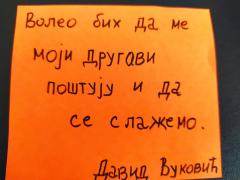 Волео бих да ме
моји другови
поштују и да
се слажемо.
Давид Вуковић